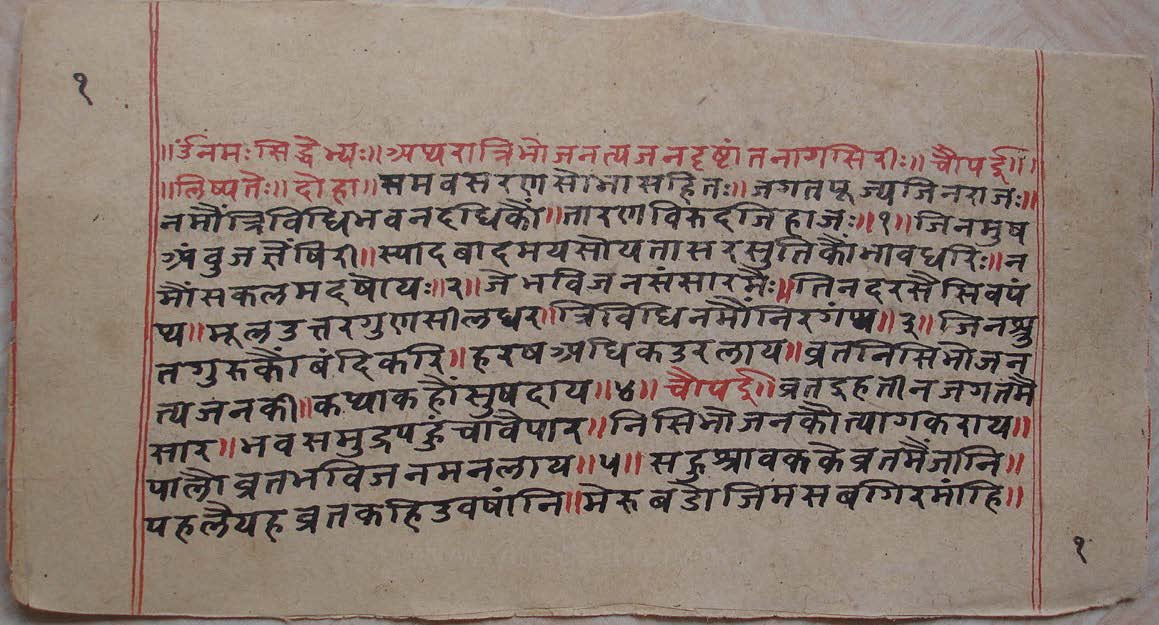 १
॥ उँनमः सिद्धेभ्यः ॥ अथ रात्रिभोजनत्यजनदृष्टांतनागसिरीः ॥ चौपई ॥
॥ लिष्यतेः ॥ दोहा ॥ समवसरण सोभा सहितः ॥ जगतपूज्य जिनराजः ॥
नमौं त्रिविधि भवनदधिकौं ॥ तारण विरुद जिहाजः ॥ १ ॥ जिनमुष
अंबुज तैंषिरी ॥ स्यादबादमय सोय ता सरसुतिकौ भाव धरिः ॥ न
मौं सकल मद षोयः ॥ २ ॥ जे भविजन संसारमैः ॥ तिन दरसै सिव पं
थ ॥ मूल उत्तर गुण सील धर ॥ त्रिविधि नमौं निरगंथ ॥ ३ ॥ जिनश्रु
त गुरुकौं बंदि करि ॥ हरष अधिक उर लाय ॥ व्रत निसिभोजन
त्यजन की ॥ कथा कहौं सुषदाय ॥ ४ ॥ चौपई ॥ व्रत दुह तीन जगतमै
सार ॥ भवसमुद्र पहुंचावै पार ॥ निसिभोजनकौ त्याग कराय ॥
पालौ व्रत भविजन मन लाय ॥ ५ ॥ सहु श्रावककै व्रतमैं जांनि ॥
पहलै यह व्रत कहिउ वषांनि ॥ मेरु बडो जिम सब गिरमांहि ॥
१